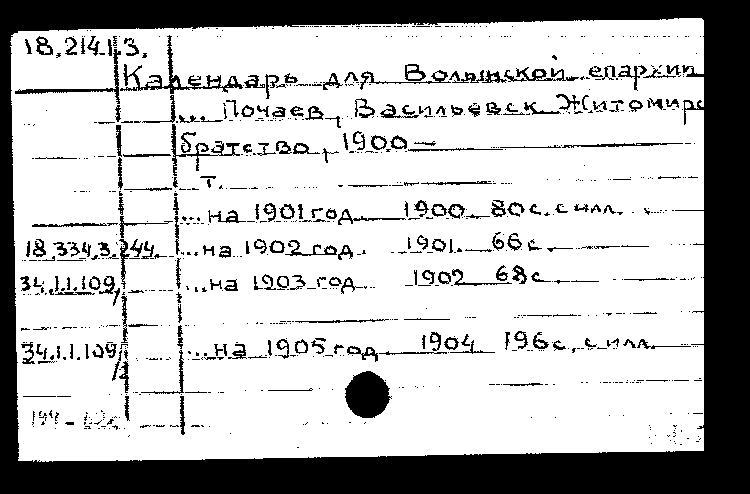 18.214.1.3.
Календарь для Волынской епархии
... Почаев, Васильевск Житомирс
братство, 1900 —
т.
...на 1901 год. 1900. 80 с. с илл.
18.334.3.244. ...на 1902 год. 1901. 66 с.
34.1.1.109/ ...на 1903 год 1902 68 с.
34.1.1.109/2 ...на 1905 год. 1904 196 с., с илл.